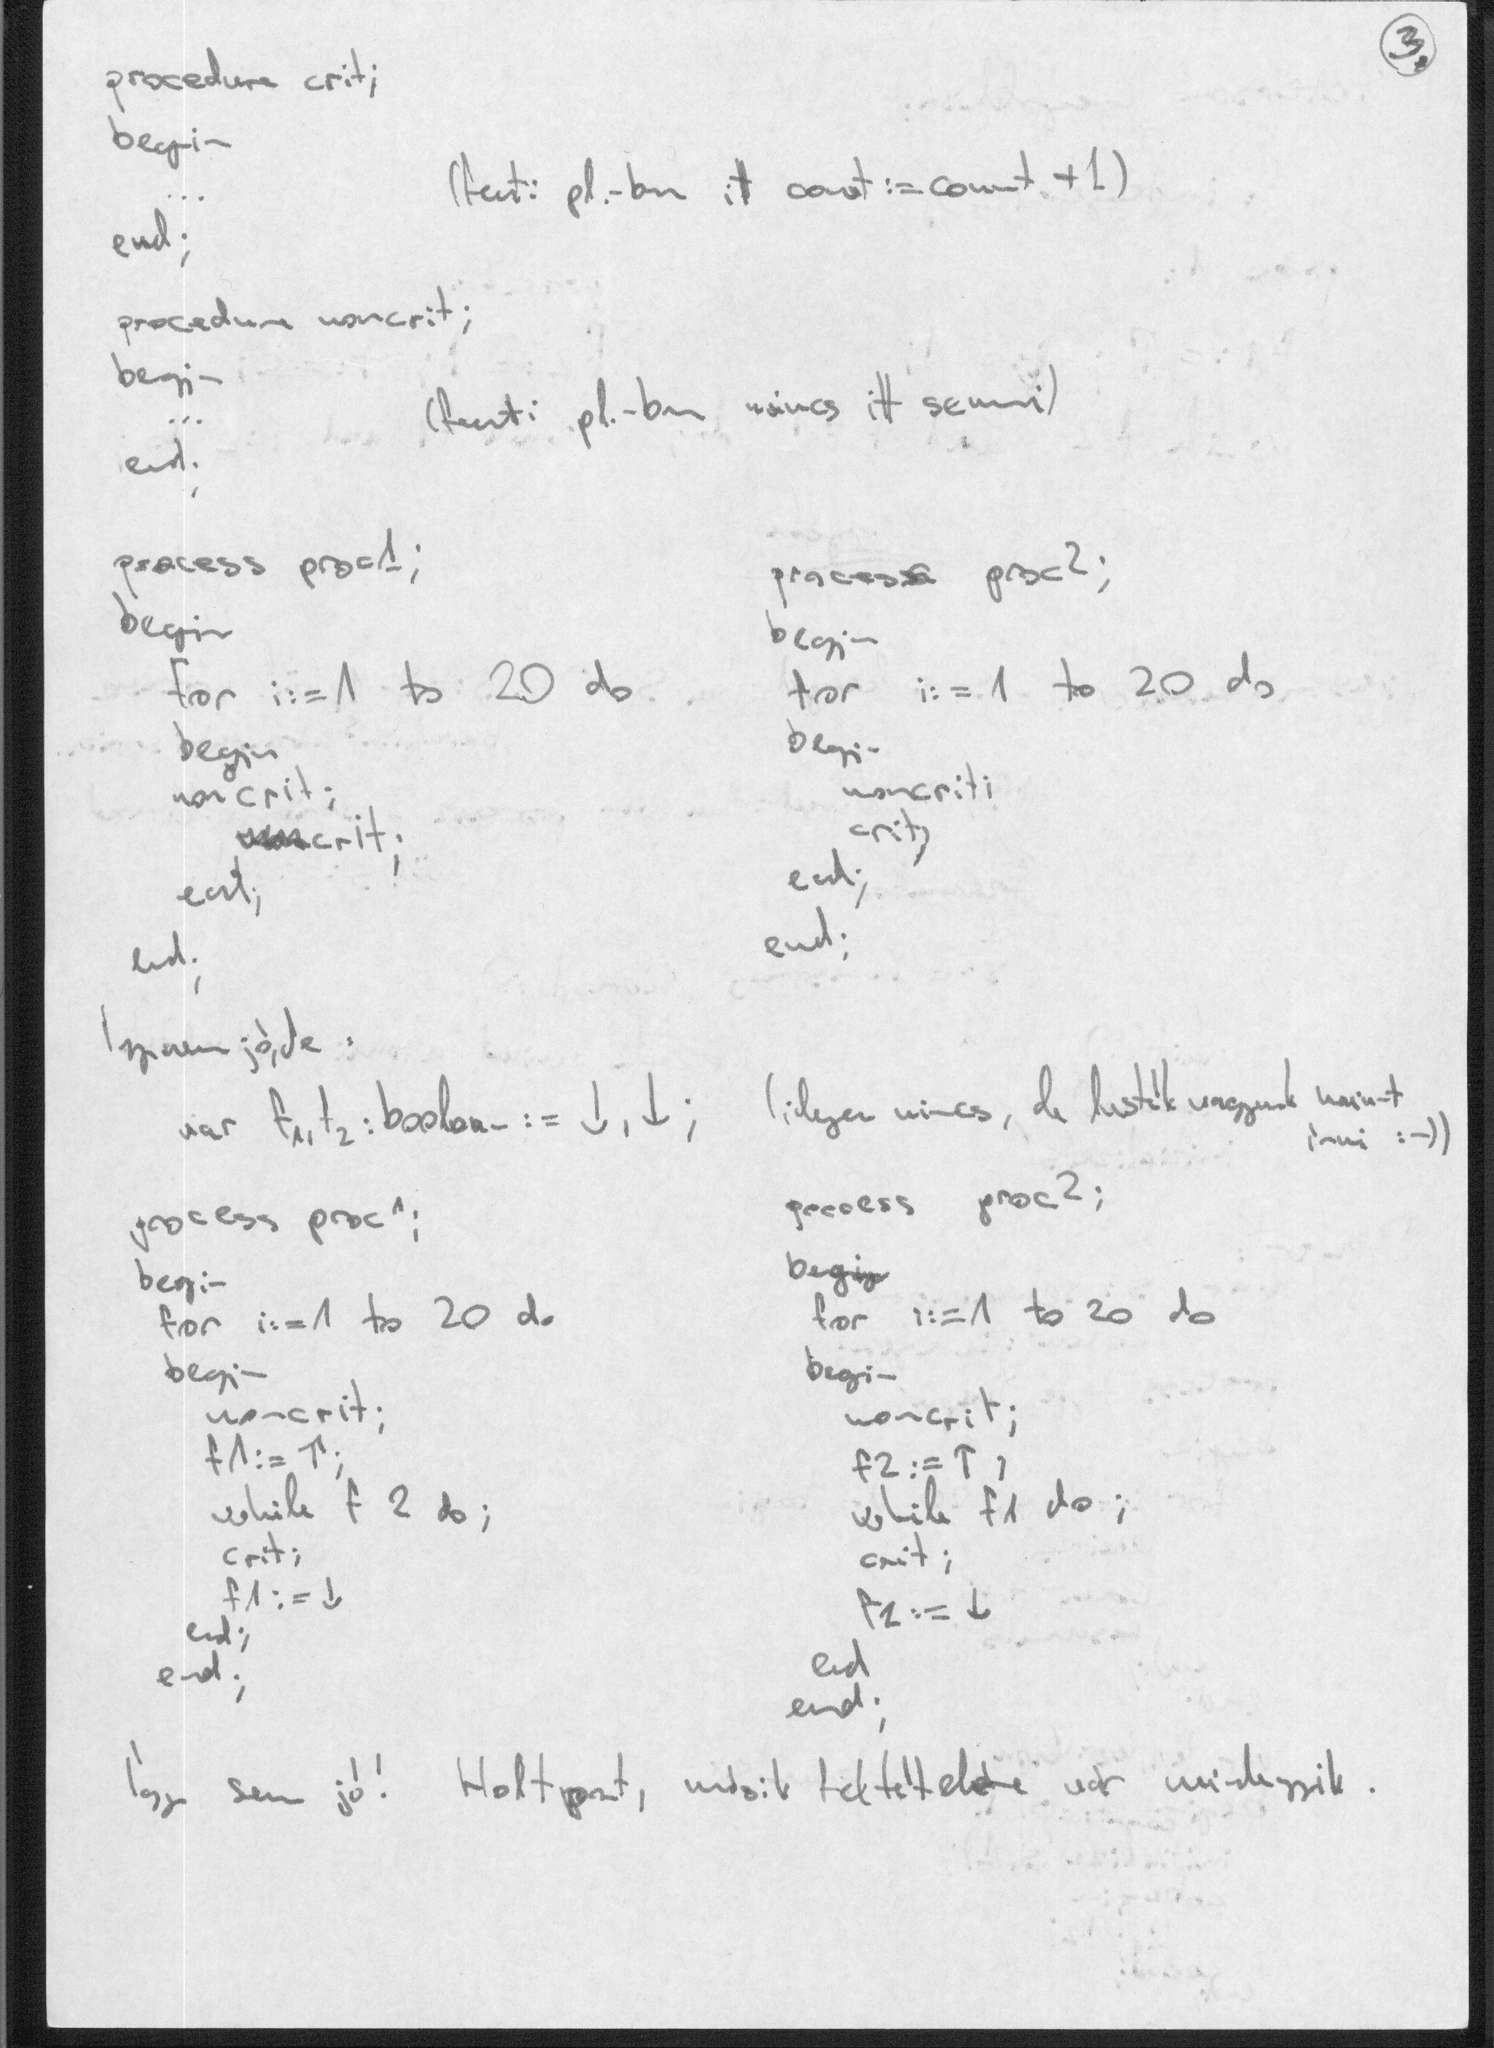 3.
procedure crit;
begin
...
(fenti pl.-ban itt count:=count +1)
end;
procedure noncrit;
begin
...
(fenti pl.-ban nincs itt semmi)
end;
process proc1;
begin
for i:=1 to 20 do
begin
noncrit;
crit;
end;
end;
process proc2;
begin
for i:=1 to 20 do
begin
noncrit;
crit;
end;
end;
Így nem jó, de:
var f1, f2 : boolean := ↓, ↓; (ilyen nincs, de lusták vagyunk
írni :-))
process proc1;
begin
for i:=1 to 20 do
begin
noncrit;
f1:= ↑;
while f2 do;
crit;
f1:= ↓
end;
end;
process proc2;
begin
for i:=1 to 20 do
begin
noncrit;
f2:= ↑;
while f1 do;
crit;
f2:= ↓
end
end;
Így sem jó! Holtpont, másik feltételére vár mindegyik.